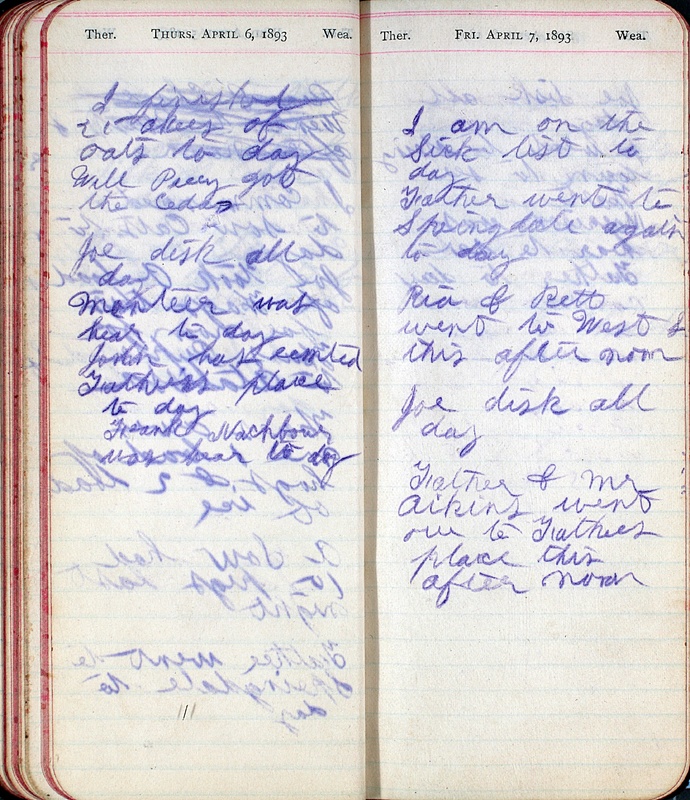 Ther. THURS. APRIL 6, 1893 Wea.
I finished
acres of
oats to day
Will got
the Cedar
Joe disk all
day
Monteer was
hear to day
John has rented
Fathers place
to day
Frank Nachbour
was hear to day
111
Ther. FRI. APRIL 7, 1893 Wea.
I am on the
Sick list to
day
Father went to
Springdale again
to day
Ria & Bett
went to West
this after noon
Joe disk all
day
Father & Mr
Aikins went
over to Fathers
place this
after noon